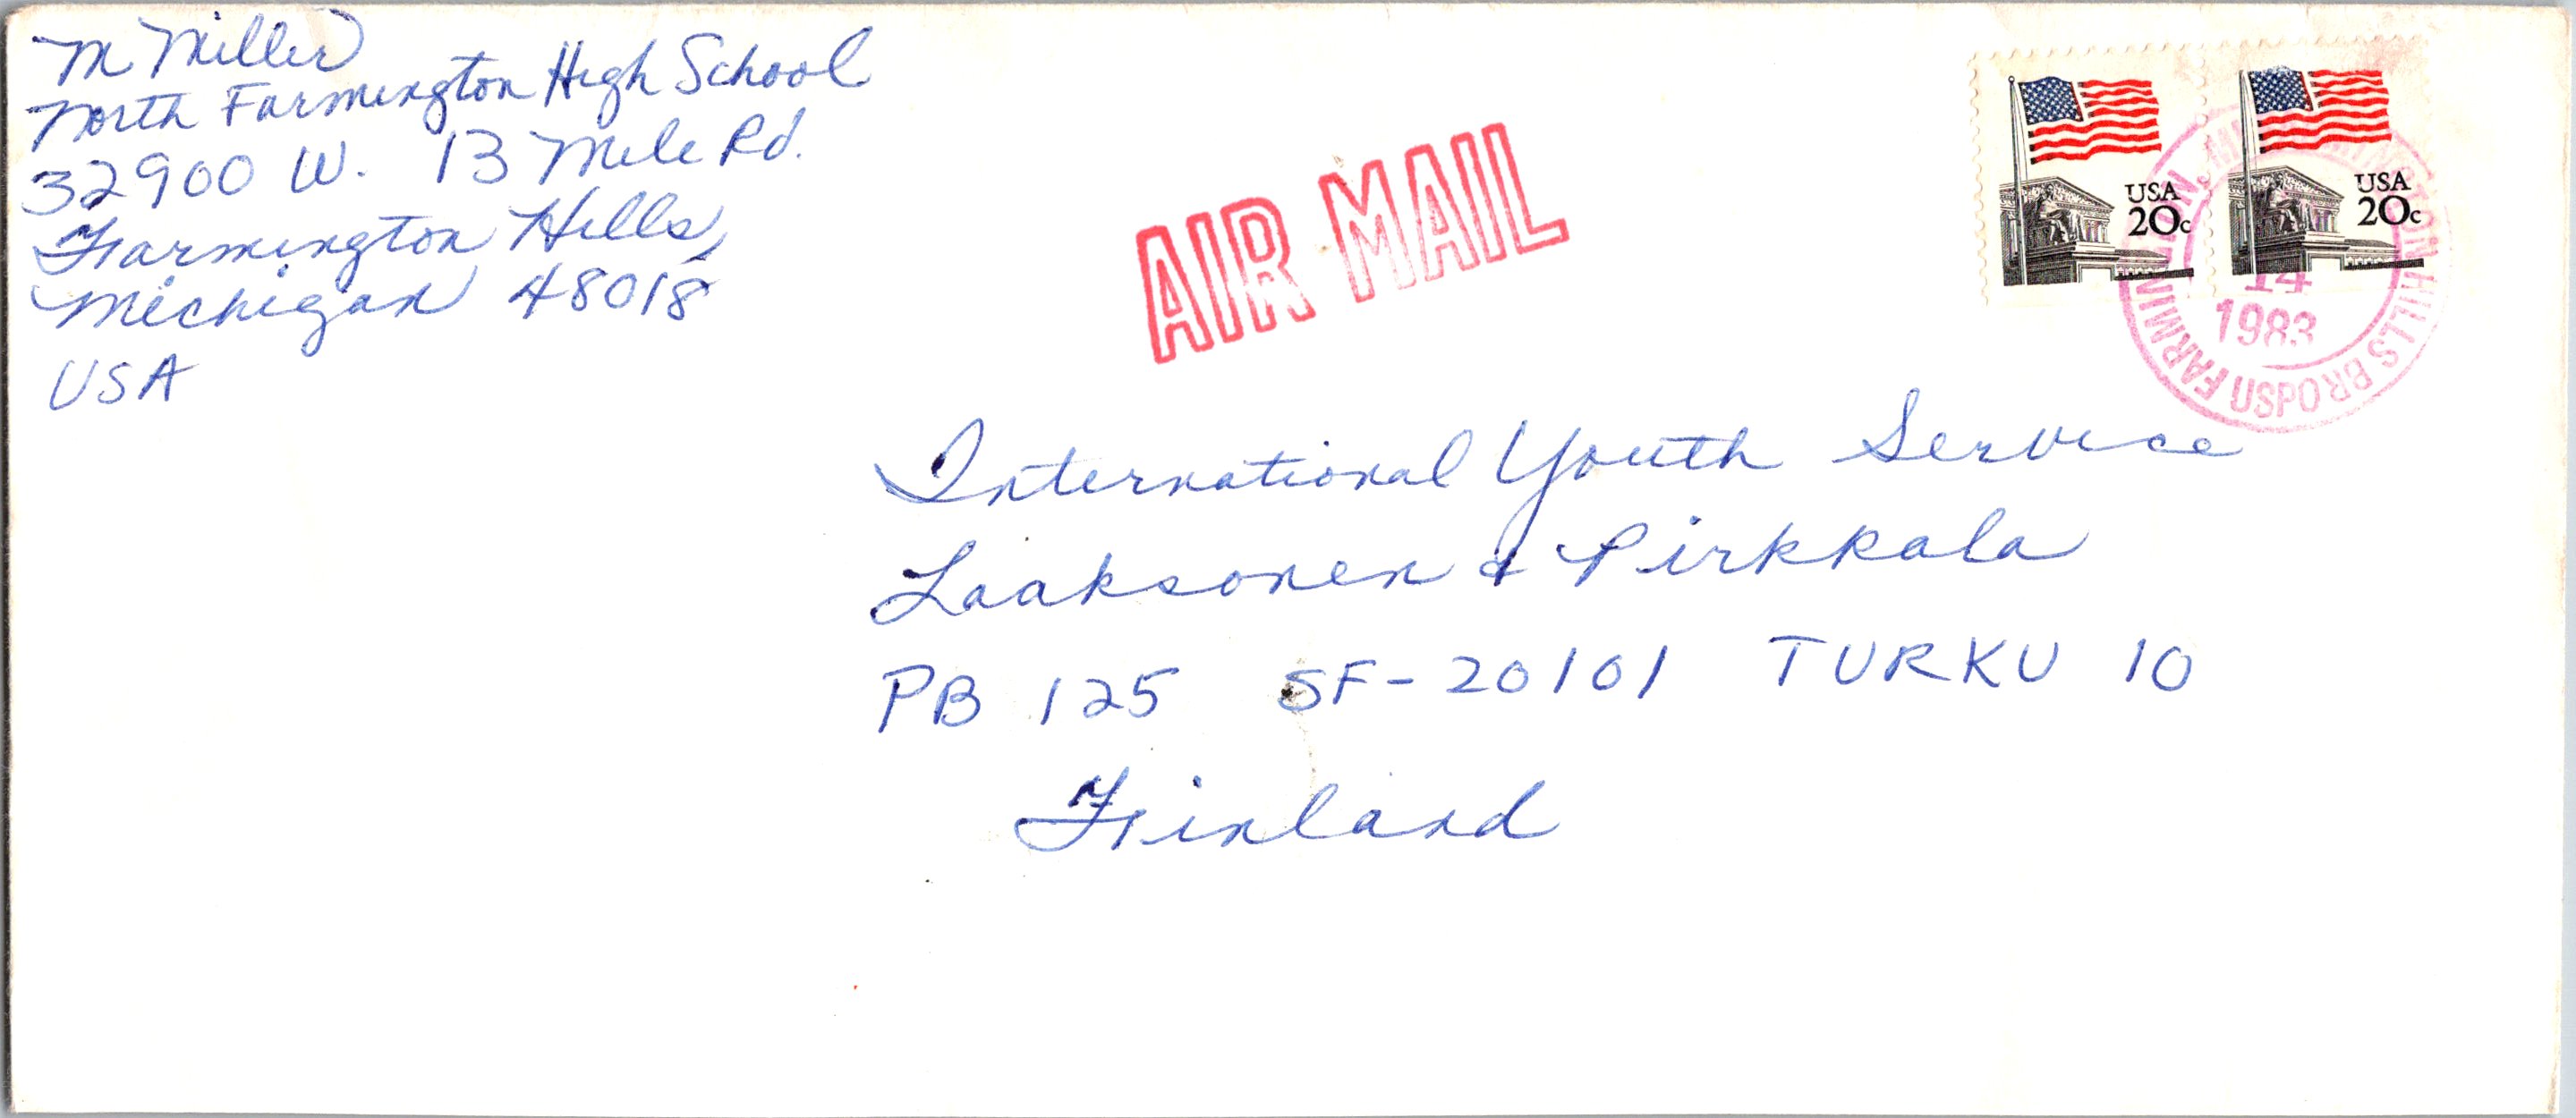 M Miller
North Farmington High School
32900 W. 13 Mile Rd.
Farmington Hills,
Michigan 48018
USA
AIR MAIL
USA
20c
USA
20c
14
1983
FARMINGTON, MI
HILLS BR
USPO
International Youth Service
Laaksonen & Pirkkala
PB 125 SF-20101 TURKU 10
Finland